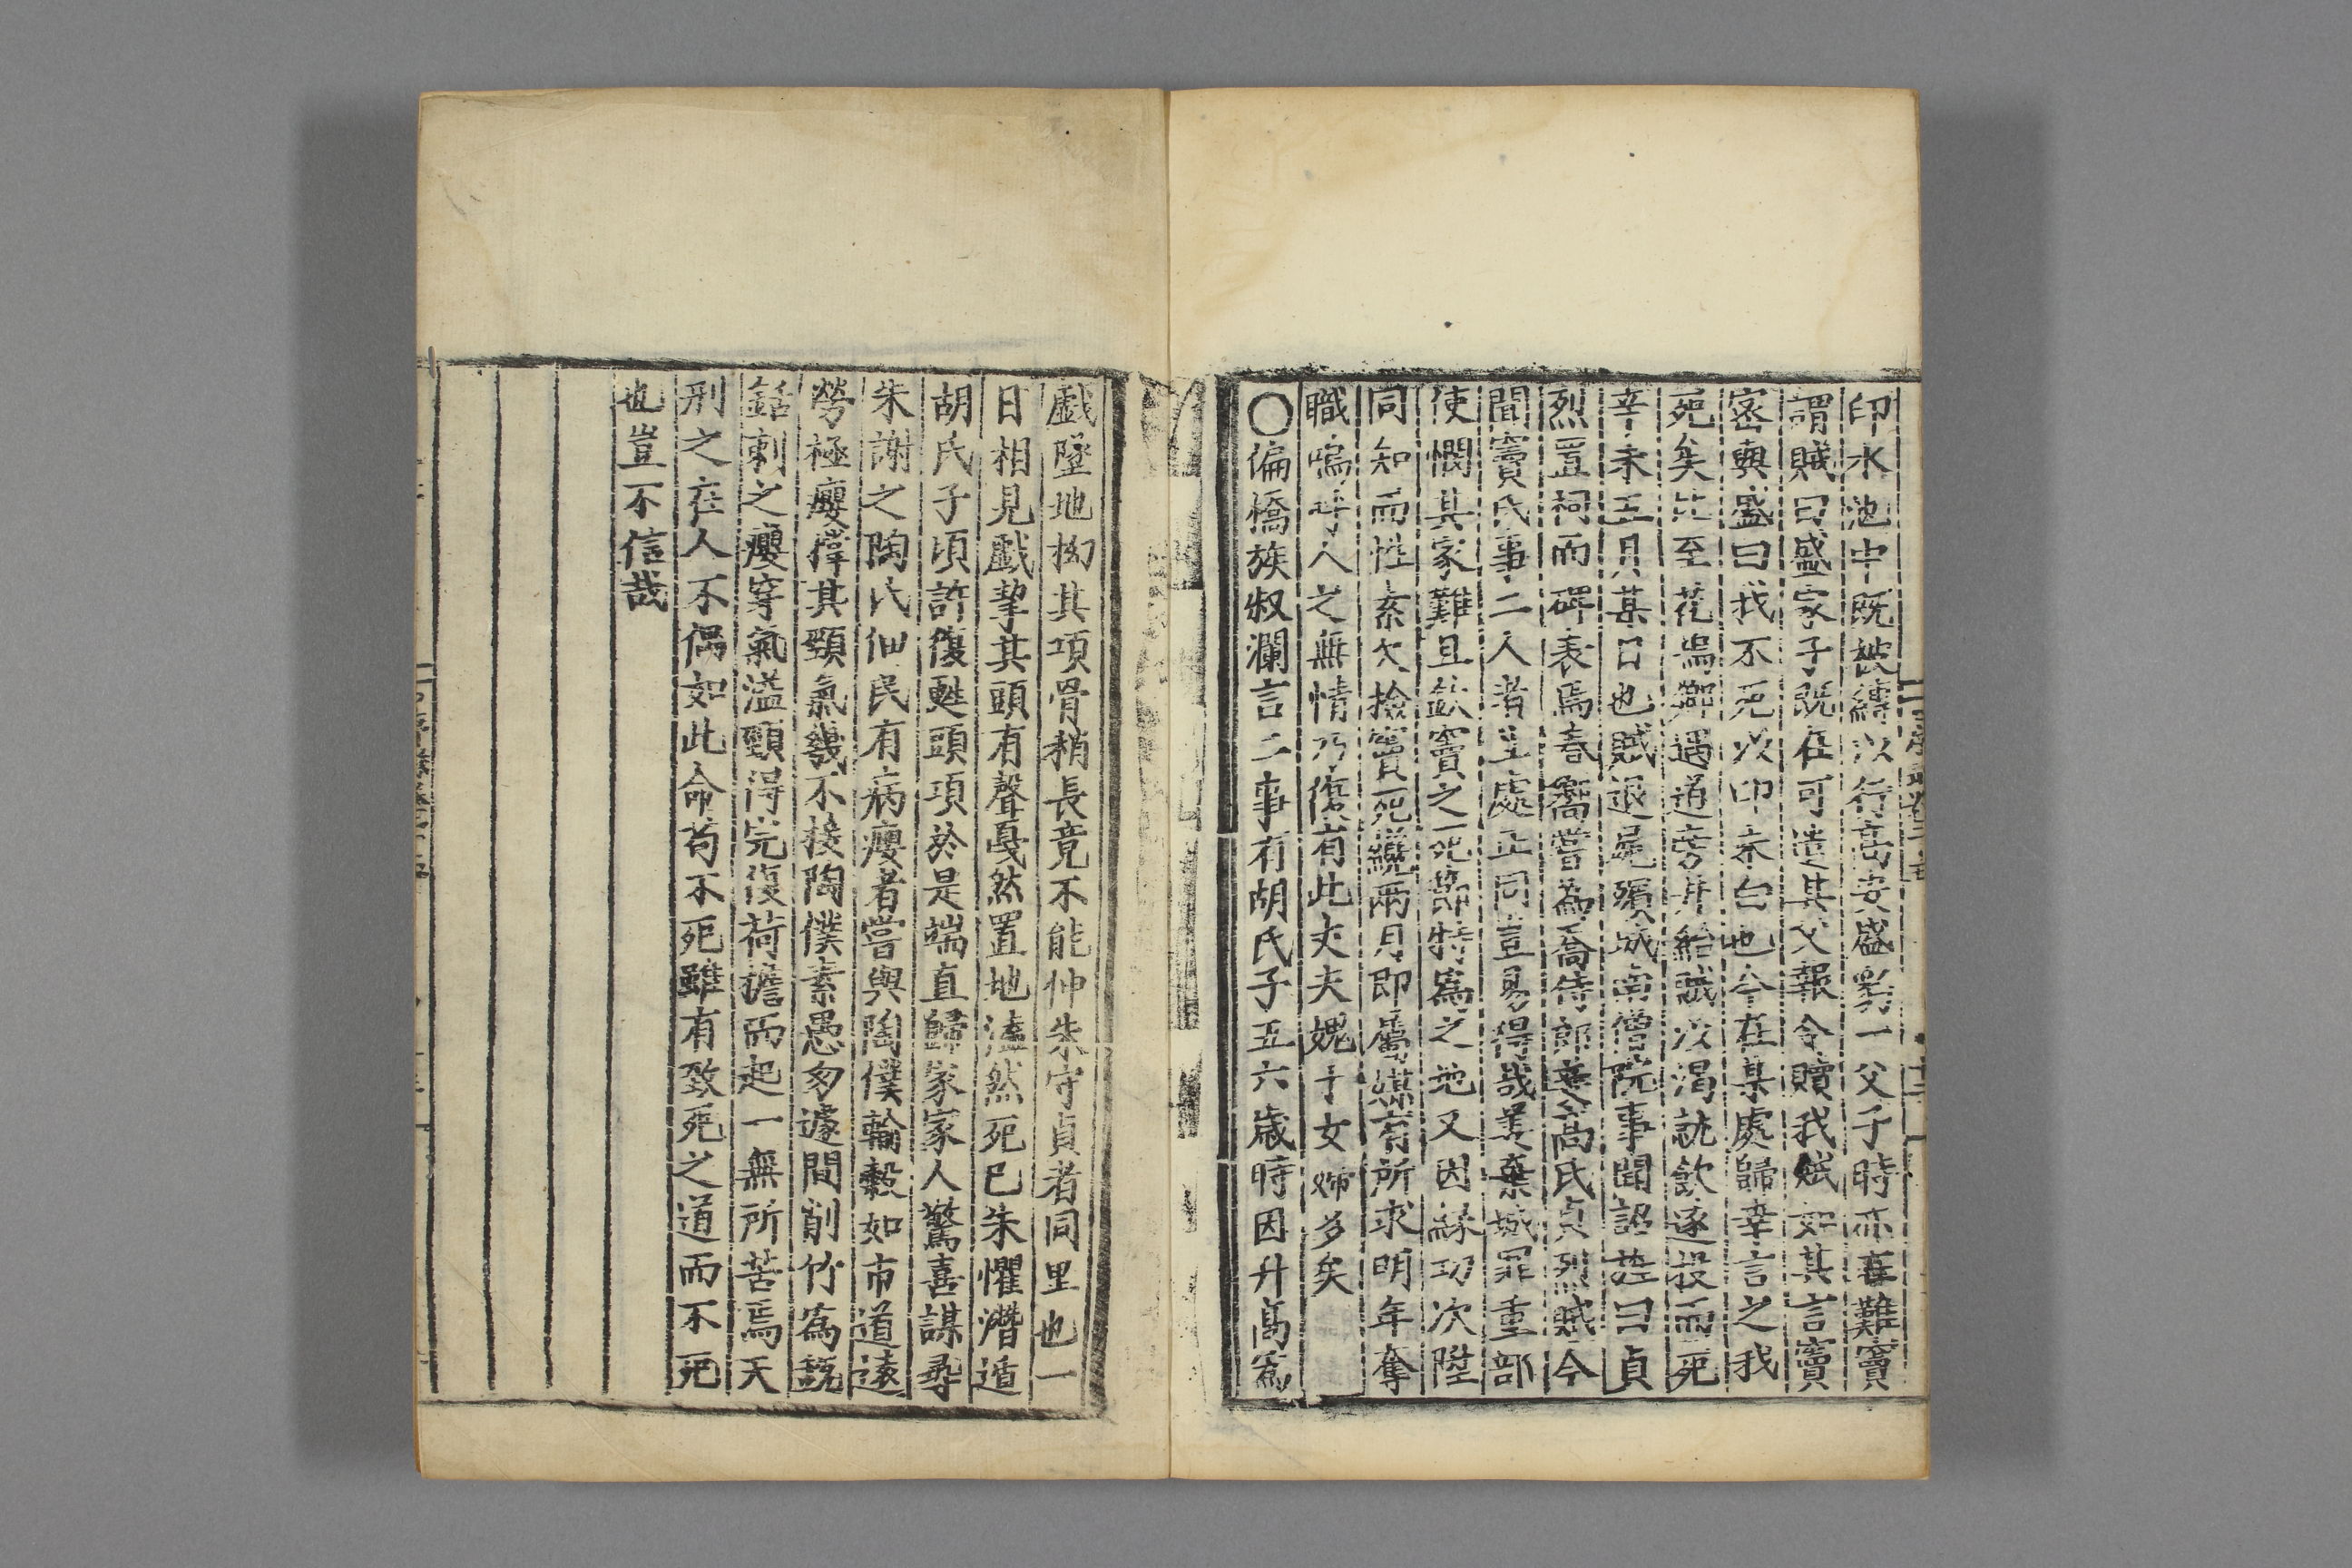 印水池中既被縛以行高安盛豹一父子時亦在難竇
謂賊曰盛家子既在可遣其父報令贖我賊如其言竇
密與盛曰我不死以印未白也今在某處歸幸言之我
死矣比至花塢鄉遇道旁井紿賊以渴就飲遂投而死
辛未五月某日也賊退屍殯城南僧院事聞詔旌曰貞
烈置祠而碑表焉春嘗為喬侍郎妻高氏貞烈賊今
聞竇氏事二人者生處正同豈易得哉姜棄城罪重部
使憫其家難且竇之死節特為之地又因緣功次陞
同知而性素欠撿竇死纔兩月即屬媒有所求明年奪
職嗚呼人之無情乃復有此丈夫媿于女婦多矣
〇偏橋族叔瀾言二事有胡氏子五六歲時因升高為
戲墜地拗其項骨稍長竟不能伸朱守貞者同里也一
日相見戲挈其頭有聲戛然置地溘然死已朱懼潛遁
胡氏子頃許復甦頭項於是端直歸家家人驚喜謀尋
朱謝之陶氏佃民有病癭者嘗與陶僕輸穀如市道遠
勞極癭撐其頸氣幾不接陶僕素愚匆遽間削竹為
銛刺之癭穿氣溢頸得完復荷擔而起一無所苦焉天
刑之在人不偶如此命苟不死雖有致死之道而不死
也豈不信哉